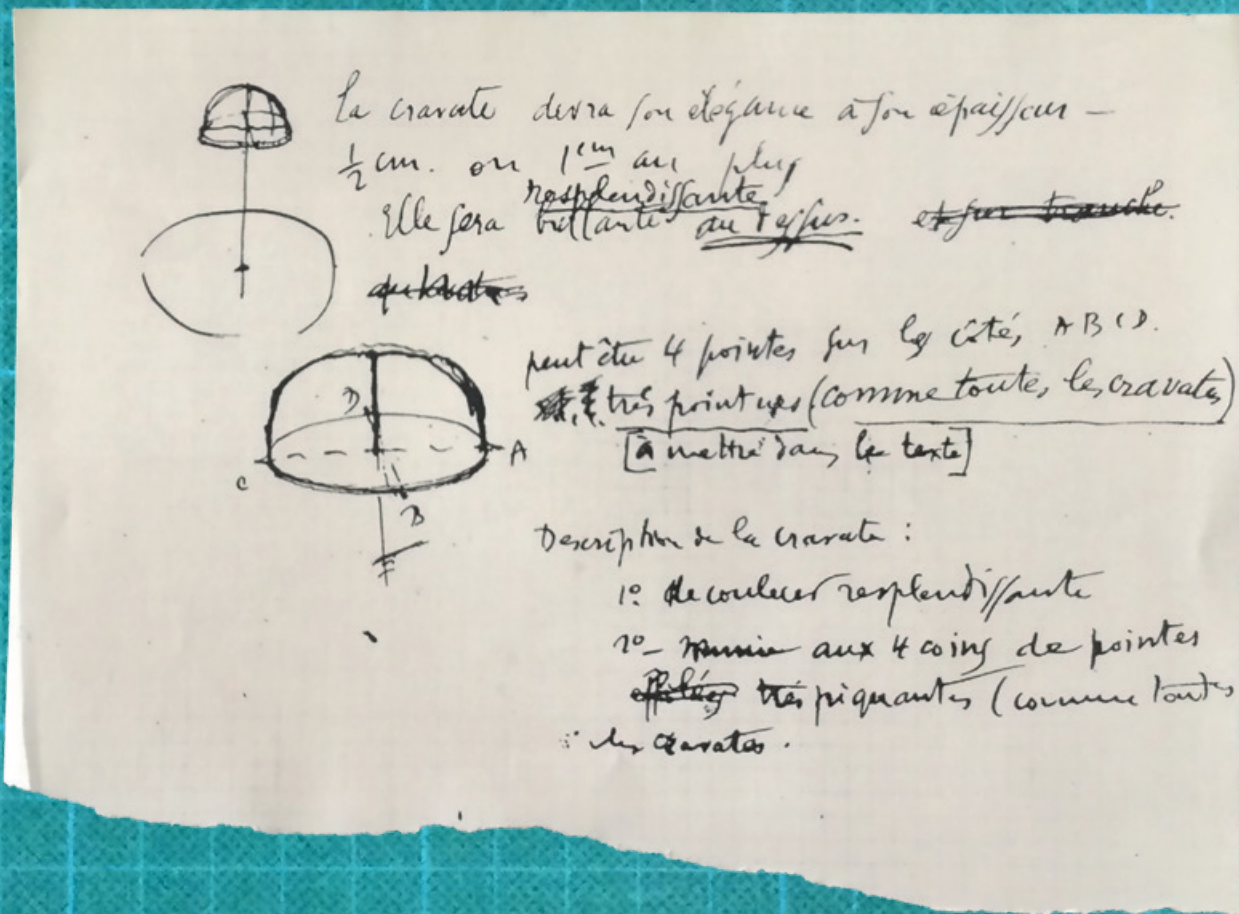 La cravate devra son élégance à son épaisseur –
½ cm. ou 1 cm au plus
resplendissante
Elle sera brillante au dessus. et sur tranche.
peut être 4 pointes sur les côtés A B C D.
très pointues (comme toutes les cravates)
[à mettre dans le texte]
D
A
C
B
Description de la cravate :
1º de couleur resplendissante
2º – munie aux 4 coins de pointes
effilées très piquantes (comme toutes
les cravates.